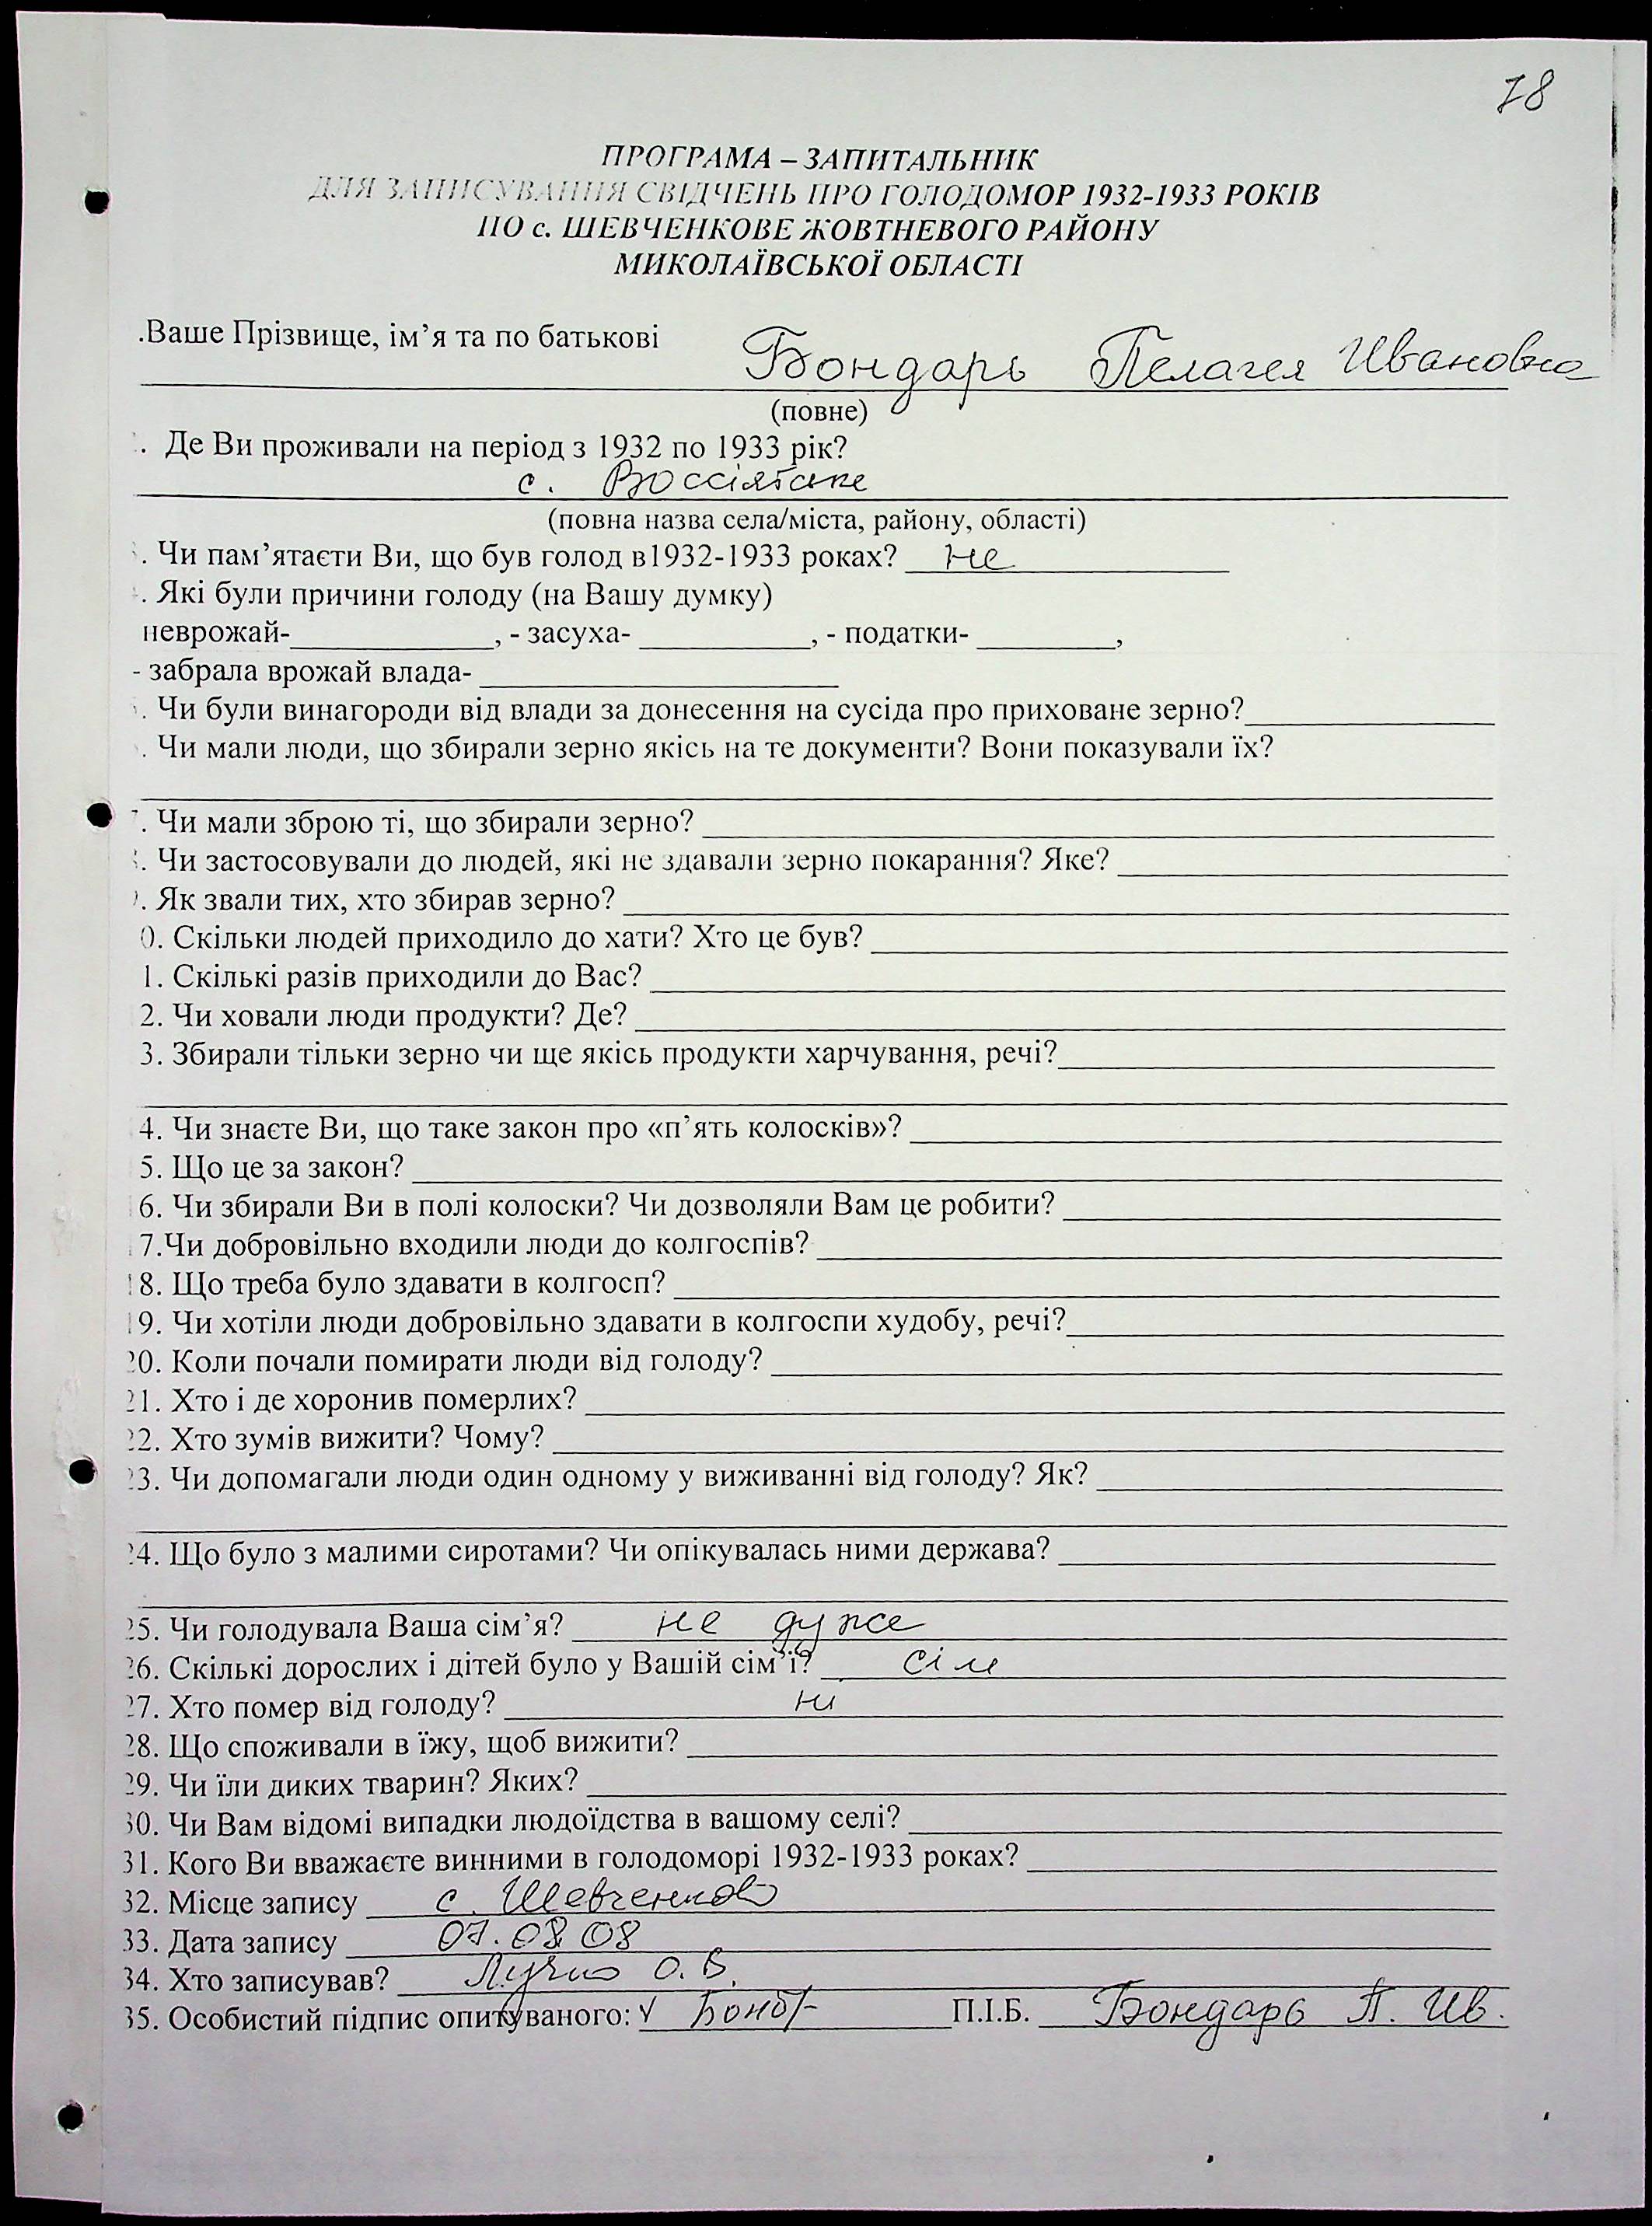 78
ПРОГРАМА – ЗАПИТАЛЬНИК
ДЛЯ ЗАПИСУВАННЯ СВІДЧЕНЬ ПРО ГОЛОДОМОР 1932-1933 РОКІВ
ПО с. ШЕВЧЕНКОВЕ ЖОВТНЕВОГО РАЙОНУ
МИКОЛАЇВСЬКОЇ ОБЛАСТІ
.Ваше Прізвище, ім’я та по батькові
Бондарь Пелагея Ивановна
(повне)
. Де Ви проживали на період з 1932 по 1933 рік?
с.
(повна назва села/міста, району, області)
. Чи пам’ятаєти Ви, що був голод в1932-1933 роках? не
. Які були причини голоду (на Вашу думку)
неврожай-____________, - засуха- ___________, - податки- _________,
- забрала врожай влада- ____________
. Чи були винагороди від влади за донесення на сусіда про приховане зерно?____________
. Чи мали люди, що збирали зерно якісь на те документи? Вони показували їх?
7. Чи мали зброю ті, що збирали зерно? ____________
. Чи застосовували до людей, які не здавали зерно покарання? Яке? ____________
. Як звали тих, хто збирав зерно? ____________
0. Скільки людей приходило до хати? Хто це був? ____________
1. Скількі разів приходили до Вас? ____________
2. Чи ховали люди продукти? Де? ____________
3. Збирали тільки зерно чи ще якісь продукти харчування, речі?____________
4. Чи знаєте Ви, що таке закон про «п’ять колосків»? ____________
5. Що це за закон? ____________
16. Чи збирали Ви в полі колоски? Чи дозволяли Вам це робити? ____________
17.Чи добровільно входили люди до колгоспів? ____________
18. Що треба було здавати в колгосп? ____________
19. Чи хотіли люди добровільно здавати в колгоспи худобу, речі?____________
20. Коли почали помирати люди від голоду? ____________
21. Хто і де хоронив померлих? ____________
22. Хто зумів вижити? Чому? ____________
23. Чи допомагали люди один одному у виживанні від голоду? Як? ____________
24. Що було з малими сиротами? Чи опікувалась ними держава? ____________
25. Чи голодувала Ваша сім’я? не дуже
26. Скількі дорослих і дітей було у Вашій сім’ї? сім
27. Хто помер від голоду? ни
28. Що споживали в їжу, щоб вижити? ____________
29. Чи їли диких тварин? Яких? ____________
30. Чи Вам відомі випадки людоїдства в вашому селі? ____________
31. Кого Ви вважаєте винними в голодоморі 1932-1933 роках? ____________
32. Місце запису с. Шевченково
33. Дата запису 07.08.08
34. Хто записував? О. В.
35. Особистий підпис опитуваного: П.І.Б. Бондарь П. Ив.